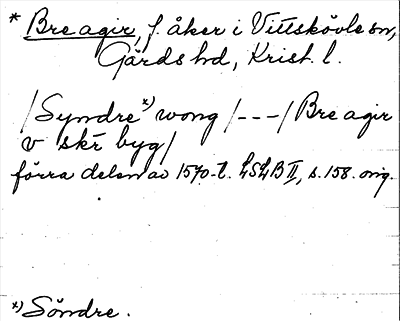 * Bre agir, f. åker i Vittskövle sn,
Gärds hd, Krist. l.
/Syndre *) wong /---/ Bre agir
v skr̄ byg/
förra delen av 1570-t. LSLB II, s. 158. orig.
*) Söndre.